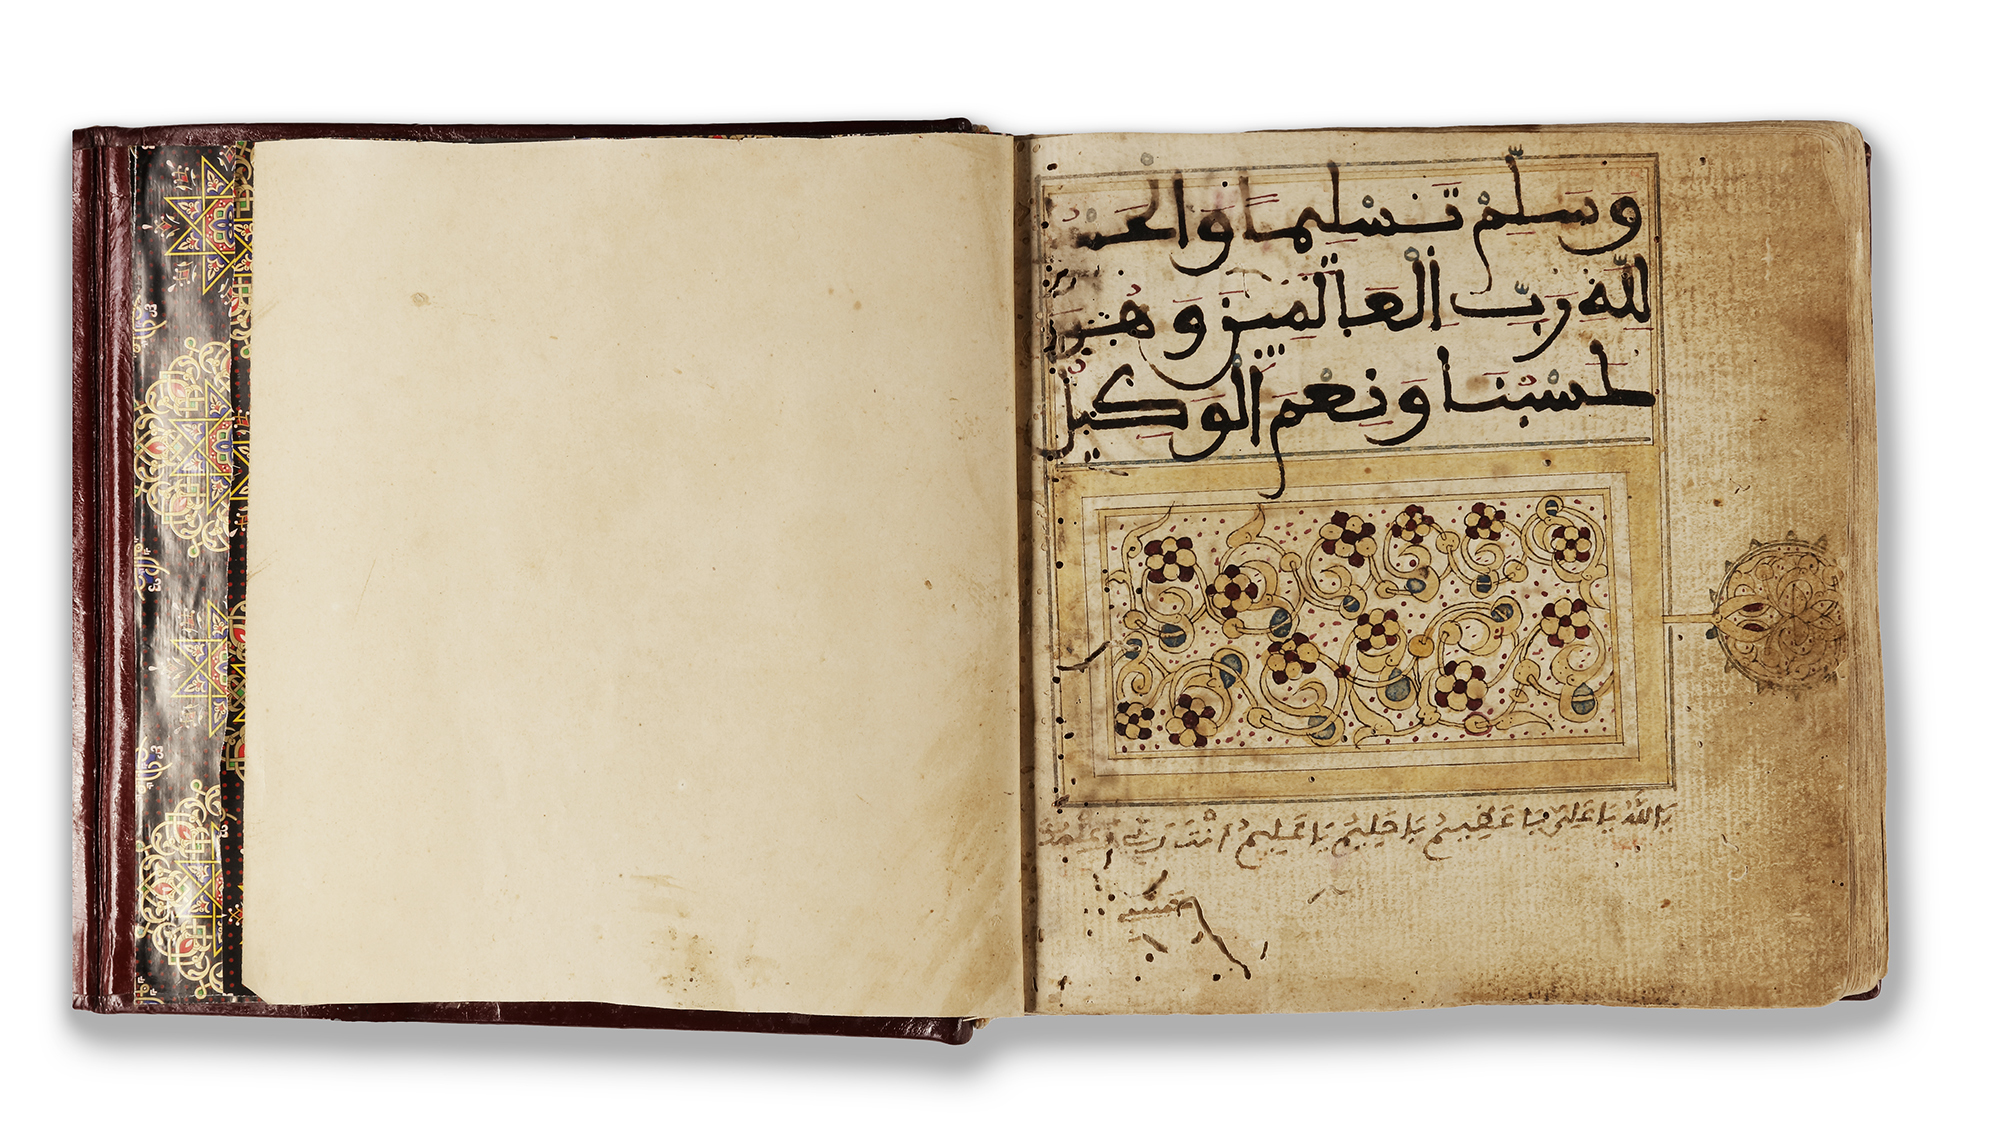 وَسَلِّمْ تَسْلِيمًا وَالْحَمْدُ
لِلَّهِ رَبِّ الْعَالَمِينَ وَهُوَ
حَسْبُنَا وَنِعْمَ الْوَكِيل
يَا اللَّهُ يَا عَلِيُّ يَا عَظِيمُ يَا حَلِيمُ يَا عَلِيمُ أَنْتَ رَبِّي